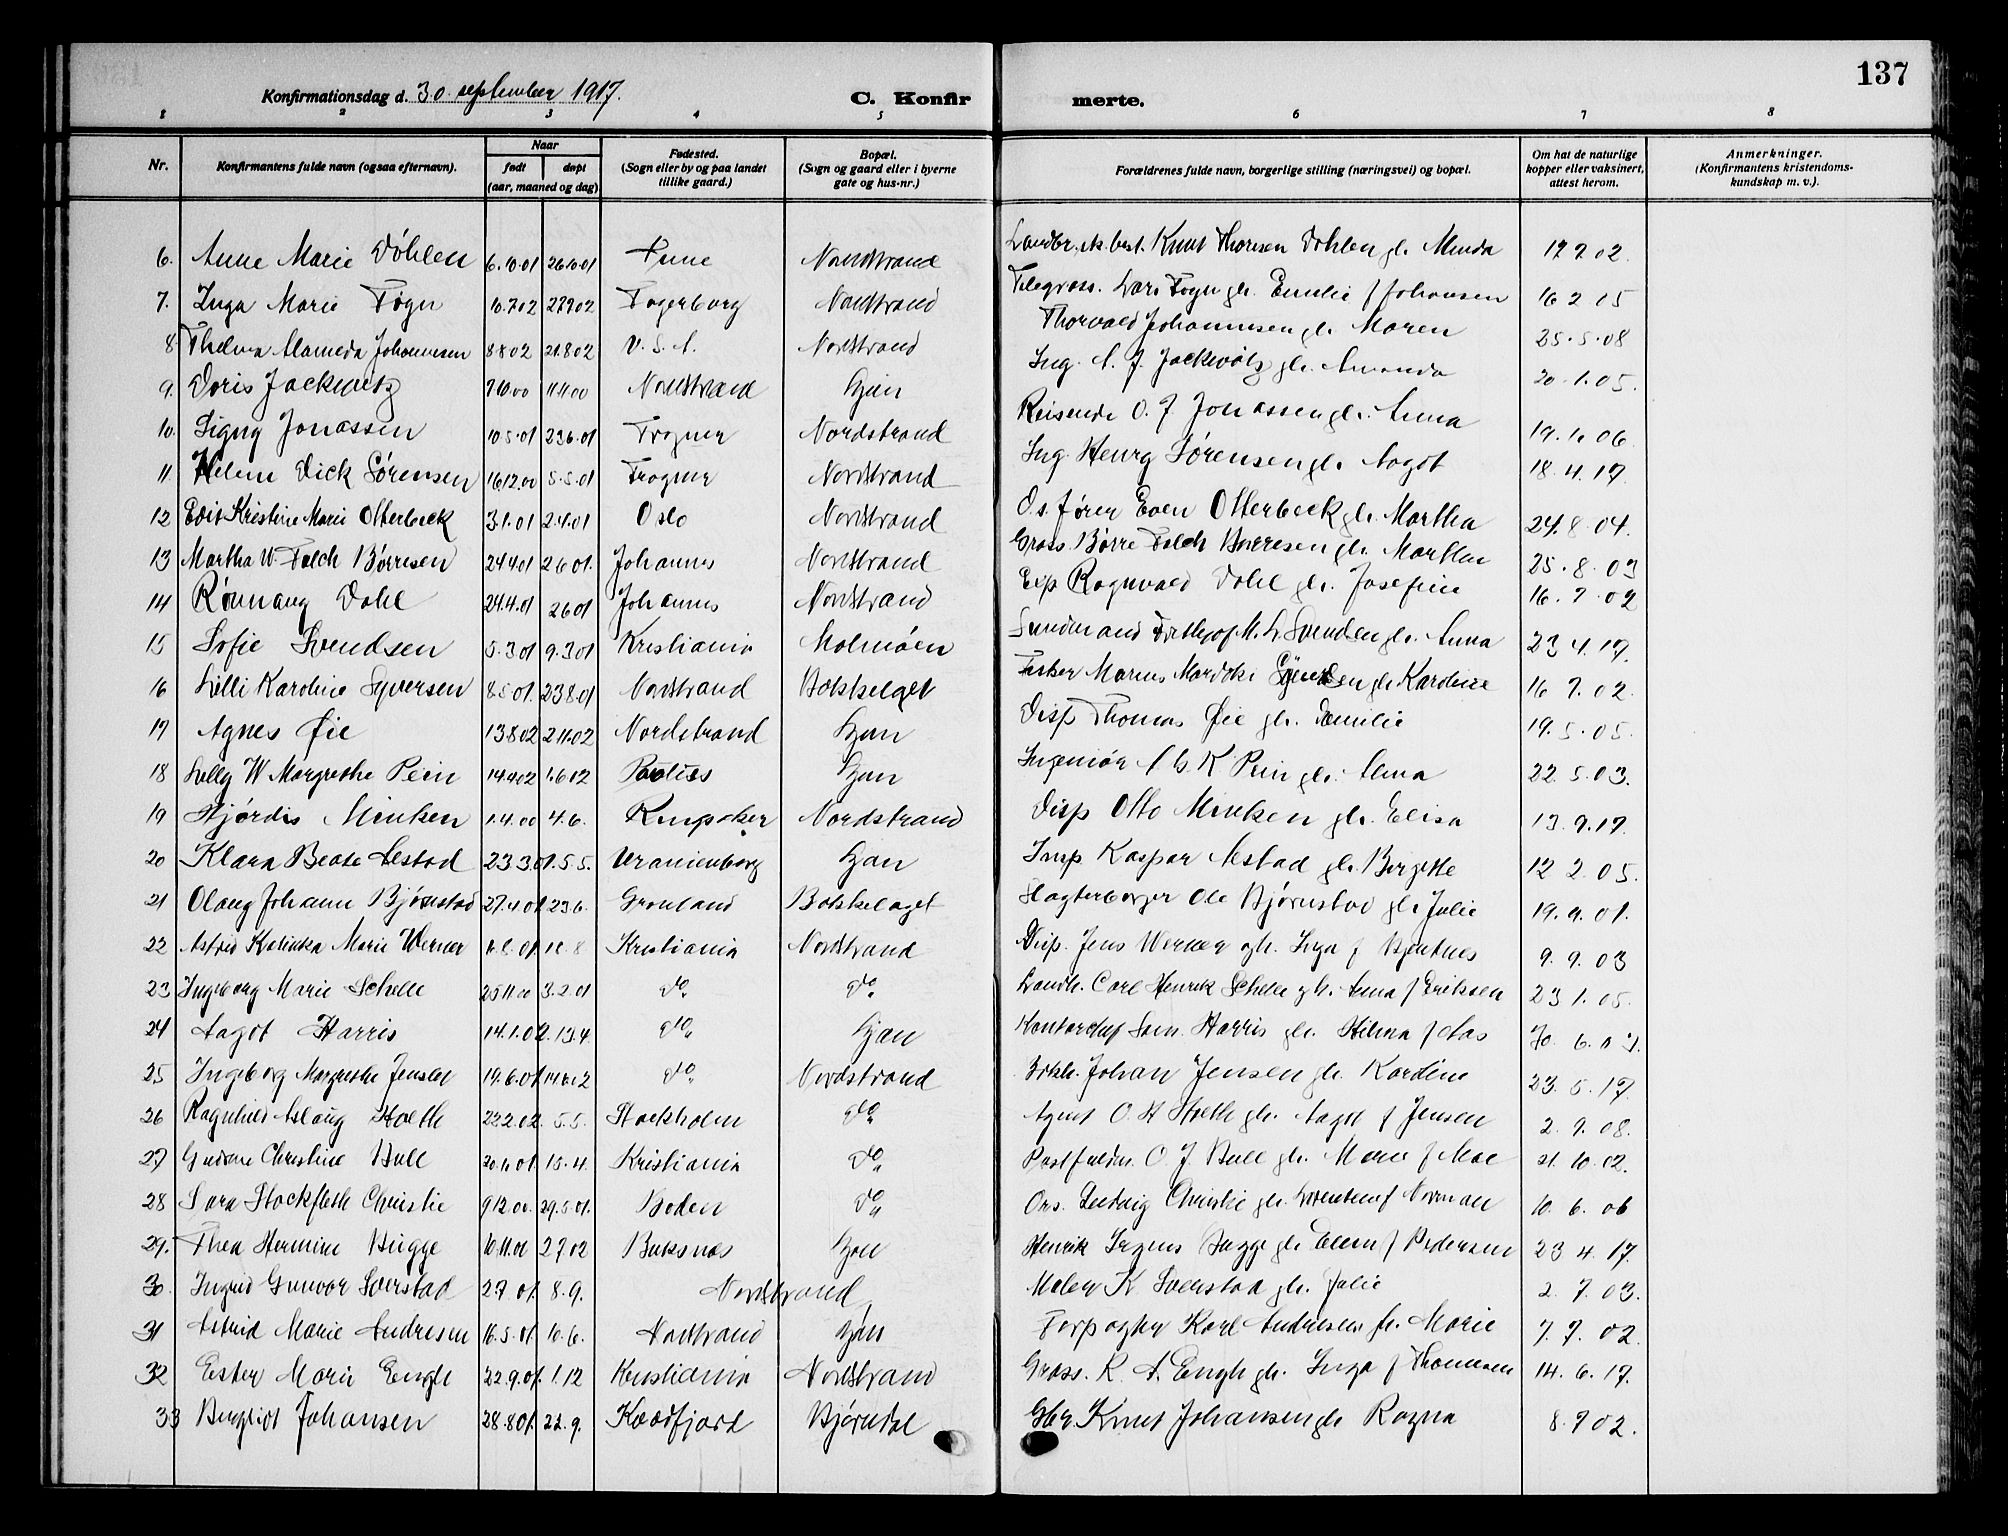 137
Konfirmationsdag d. 30. september 1917.
C. Konfir
merte.
1 2 3 4 5 6 7 8
Nr.
Konfirmantens fulde navn (ogsaa efternavn).
Naar
født døpt
(aar, maaned og dag)
Fødested.
(Sogn eller by og paa landet
tillike gaard.)
Bopæl.
(Sogn og gaard eller i byerne
gate og hus-nr.)
Forældrenes fulde navn, borgerlige stilling (næringsvei) og bopæl.
Om hat de naturlige
kopper eller vaksinert,
attest herom.
Anmerkninger.
(Konfirmantens kristendoms-
kundskap m. v.).
6. Anne Marie Döhlen 6.10.01 26.10.01 Nordstrand Knut Thoresen Dohlen gh. Minda
7. Inga Marie Føgn 10.7.02 Fagerborg Nordstrand Lars Føgn gh. Emilie f Johansen 16 2 15
8 Thelma Alameda Johannesen 8 8 02 21.8 02 U. S. A. Nordstrand Thorvald Johannesen gh. Maren 25.5.08
9. Doris Jackwitz 7 10 00 Nordstrand Ljan Ing. A. J. Jackwitz gh. Amanda 20.1.05.
10. Signy Jonassen 10.5.01 23 6.01 Frogner Nordstrand Reisende O. J Jonassen gh. Anna 19.1.06
11. Helene Dick Sörensen 16.12.00 5.5.01 Frogner Nordstrand Ing. Henry Sørensen gh. Aagot 18.4.17.
12 Edit Kristine Marie Otterbeck 3.1.01 2.4.01 Oslo Nordstrand Even Otterbeck gh. Martha 24.8.04.
13 Martha W. Falch Børresen 24 4 01 2 6 01. Johannes Nordstrand Gross. Børre Falch Børresen gh. Martha 25.8.03
14 Rønnaug Dahl 24.4.01 2 6 01 Johannes Nordstrand Exp Ragnvald Dahl gh. Josefine 16.7.02
15 Sofie Svendsen 5.3 01 9.3 01 Kristiania Malmøen gh. Anna 23 4.17.
16 Lilli Karoline Syversen 8 5 01. 23 8.01 Nordstrand Bækkelaget Fisker Marius gh Karoline 16 7.02.
17 Agnes Øie 13 8 02 2 11.02 Nordstrand Ljan Disp Thomas Øie gh. Emilie 19.5.05.
18 Lelly W Margrethe Pein 1.6 02 Ljan Ingeniör K Pein gh. Anna 22.5.03.
19 Hjördis Minken 1.4.00 4.6. Nordstrand Disp Otto Minken gh. Elisa 13.9.17.
20 Klara Beate Aestad 23 3.01. 5 5. Uranienborg Ljan Insp. Kaspar Aestad gh. Birgitte 12 2.05.
21 Olaug Johanne Bjørnstad 27.4 01. 23 6. Grønland Bækkelaget Ole Bjørnstad gh. Julie 19.9.01.
22 Astrid Katinka Marie Werner Kristiania Nordstrand Disp. Jens Werner gh. Inga f 9.9.03
23 Ingeborg Marie Schelle 25 11 00 3.2.01 do. do. Landh. Carl Henrik Schelle gh. Anna f Eriksen 23 1.05.
24 Aagot Harris 14.1.02. 13.4. do. Ljan Kontorchef Sam. Harris gh. Hilma f Aas
25 Ingeborg Margrethe Jensen 19.6.01. do. Nordstrand Johan Jensen gh. Karoline 23.5.17.
26 Ragnhild Aslaug Hoelth 22 2.02. 5.5. Stockholm do. Agent O. H gh. Aagot f Jensen 2.9.08.
27 Gudrun Christine Bull 15.4. Kristiania do. Postfuldm. O. J. Bull gh. Marie f Moe 21.10.02.
28 Sara Stockfleth Christie 9 12.00. 29.5.01. Boden do. Ludvig Christie gh. 10.6.06
29. Thea Hermine Bugge Buksnæs Ljan Henrik Irgens Bugge gh Ellen f Pedersen 23 4.17.
30. Ingrid Gunvor Sverstad 2.7.01. 8.9. Nordstrand Maler K Sverstad gh. Julie 2.7.03.
31 Astrid Marie Andresen 16.5.01. 16.6. Nordstrand Ljan Karl Andresen gh. Marie 7.7.02.
32 Ester Marie Engh 22.9.01. 1.12 Kristiania Nordstrand Gross. K. A. Engh gh. Inga f Thomesen 14.6.17.
33 Bergliot Johansen 28.8 01. 22.9. Kaafjord Bjørndal Knut Johansen gh Ragna 8.9 02.